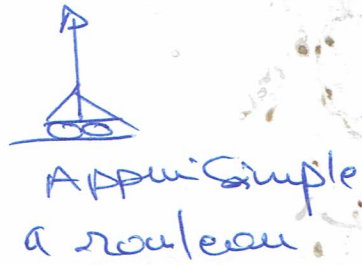 Appui Simple
a rouleau